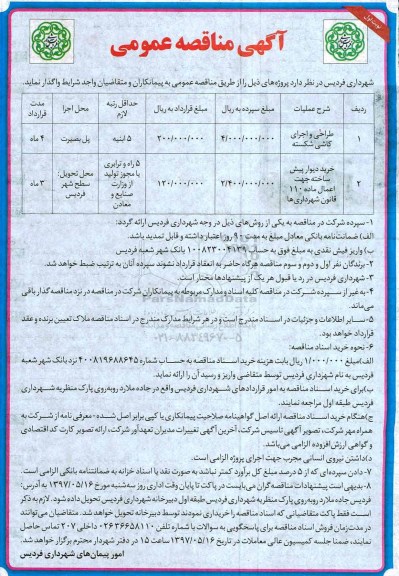 نوبت اول
آگهی مناقصه عمومی
شهرداری فردیس در نظر دارد پروژه‌های ذیل را از طریق مناقصه عمومی به پیمانکاران و متقاضیان واجد شرایط واگذار نماید.
ردیف شرح عملیات مبلغ سپرده به ریال مبلغ قرارداد به ریال حداقل رتبه لازم محل اجرا مدت قرارداد
۱ طراحی و اجرای کاشی شکسته ۴/۰۰۰/۰۰۰/۰۰۰ ۲۰۰/۰۰۰/۰۰۰ ۵ ابنیه پل بصیرت ۴ ماه
۲ خرید دیوار پیش ساخته جهت اعمال ماده ۱۱۰ قانون شهرداری‌ها ۲/۴۰۰/۰۰۰/۰۰۰ ۱۲۰/۰۰۰/۰۰۰ ۵ راه و ترابری با مجوز تولید از وزارت صنایع و معادن محل تحویل: سطح شهر فردیس ۳ ماه
۱- سپرده شرکت در مناقصه به یکی از روش‌های ذیل در وجه شهرداری فردیس ارائه گردد:
الف) ضمانت‌نامه بانکی معادل مبلغ به مدت ۹۰ روز اعتبار داشته و قابل تمدید باشد.
ب) واریز فیش نقدی به مبلغ فوق به حساب ۱۰۰۸۲۳۰۰۴۱۳۹ بانک شهر شعبه فردیس
۲- برندگان نفر اول و دوم و سوم مناقصه هرگاه حاضر به انعقاد قرارداد نشوند سپرده آنان به ترتیب ضبط خواهد شد.
۳- شهرداری فردیس در رد یا قبول هر یک از پیشنهادها مختار است.
۴- به غیر از سپرده شرکت در مناقصه کلیه اسناد و مدارک مربوطه به پیمانکاران شرکت در مناقصه در نزد مناقصه گذار باقی می‌ماند
۵- سایر اطلاعات و جزئیات در اسناد مندرج است و در هر شرایط مدارک مندرج در اسناد مناقصه ملاک تعیین برنده و عقد قرارداد خواهد بود.
۶- نحوه خرید اسناد مناقصه:
الف) مبلغ ۱/۰۰۰/۰۰۰ ریال بابت هزینه خرید اسناد مناقصه به حساب شماره ۴۰۰۸۱۹۶۸۸۶۴۵ نزد بانک شهر شعبه فردیس به نام شهرداری فردیس توسط متقاضی واریز و رسید آن را ارائه نماید.
ب) برای خرید اسناد مناقصه به امور قراردادهای شهرداری فردیس واقع در جاده ملارد روبه‌روی پارک منظریه شهرداری فردیس طبقه اول مراجعه نمایند.
ج) هنگام خرید اسناد مناقصه ارائه اصل گواهینامه صلاحیت پیمانکاری یا کپی برابر اصل شده- معرفی نامه از شرکت به همراه مهر شرکت، تصویر آگهی تاسیس شرکت، آخرین آگهی تغییرات مدیران تعهدآور شرکت، ارائه تصویر کارت کد اقتصادی و گواهی ارزش افزوده الزامی می‌باشد
د) داشتن نیروی انسانی مجرب جهت اجرای پروژه الزامی است.
۷- دادن سپرده‌ای که از ۵ درصد مبلغ کل برآورد کمتر نباشد به صورت نقد یا اسناد خزانه به ضمانتنامه بانکی الزامی است.
۸- بدیهی است پیشنهادات مناقصه گران می‌بایست در پاکت تا پایان وقت اداری روز سه‌شنبه مورخ ۱۳۹۷/۰۵/۱۶ به آدرس: فردیس جاده ملارد روبه‌روی پارک منظریه شهرداری فردیس طبقه اول دبیرخانه شهرداری فردیس تحویل داده شود. لازم به ذکر است فقط پاکت متقاضیانی که اسناد مناقصه را خریداری نمودند توسط دبیرخانه تحویل خواهد شد. متقاضیان می‌توانند در مدت زمان فروش اسناد مناقصه برای پاسخگویی به سوالات با شماره تلفن ۰۲۶۳۶۶۵۸۱۱۰ داخلی ۲۰۷ تماس حاصل نمایند، ضمنا جلسه کمیسیون عالی معاملات در تاریخ ۱۳۹۷/۰۵/۱۶ ساعت ۱۵ در دفتر شهردار محترم برگزار خواهد شد.
امور پیمان‌های شهرداری فردیس
ParsNamadData
۰۲۱-۸۸۳۴۹۶۷۰-۵